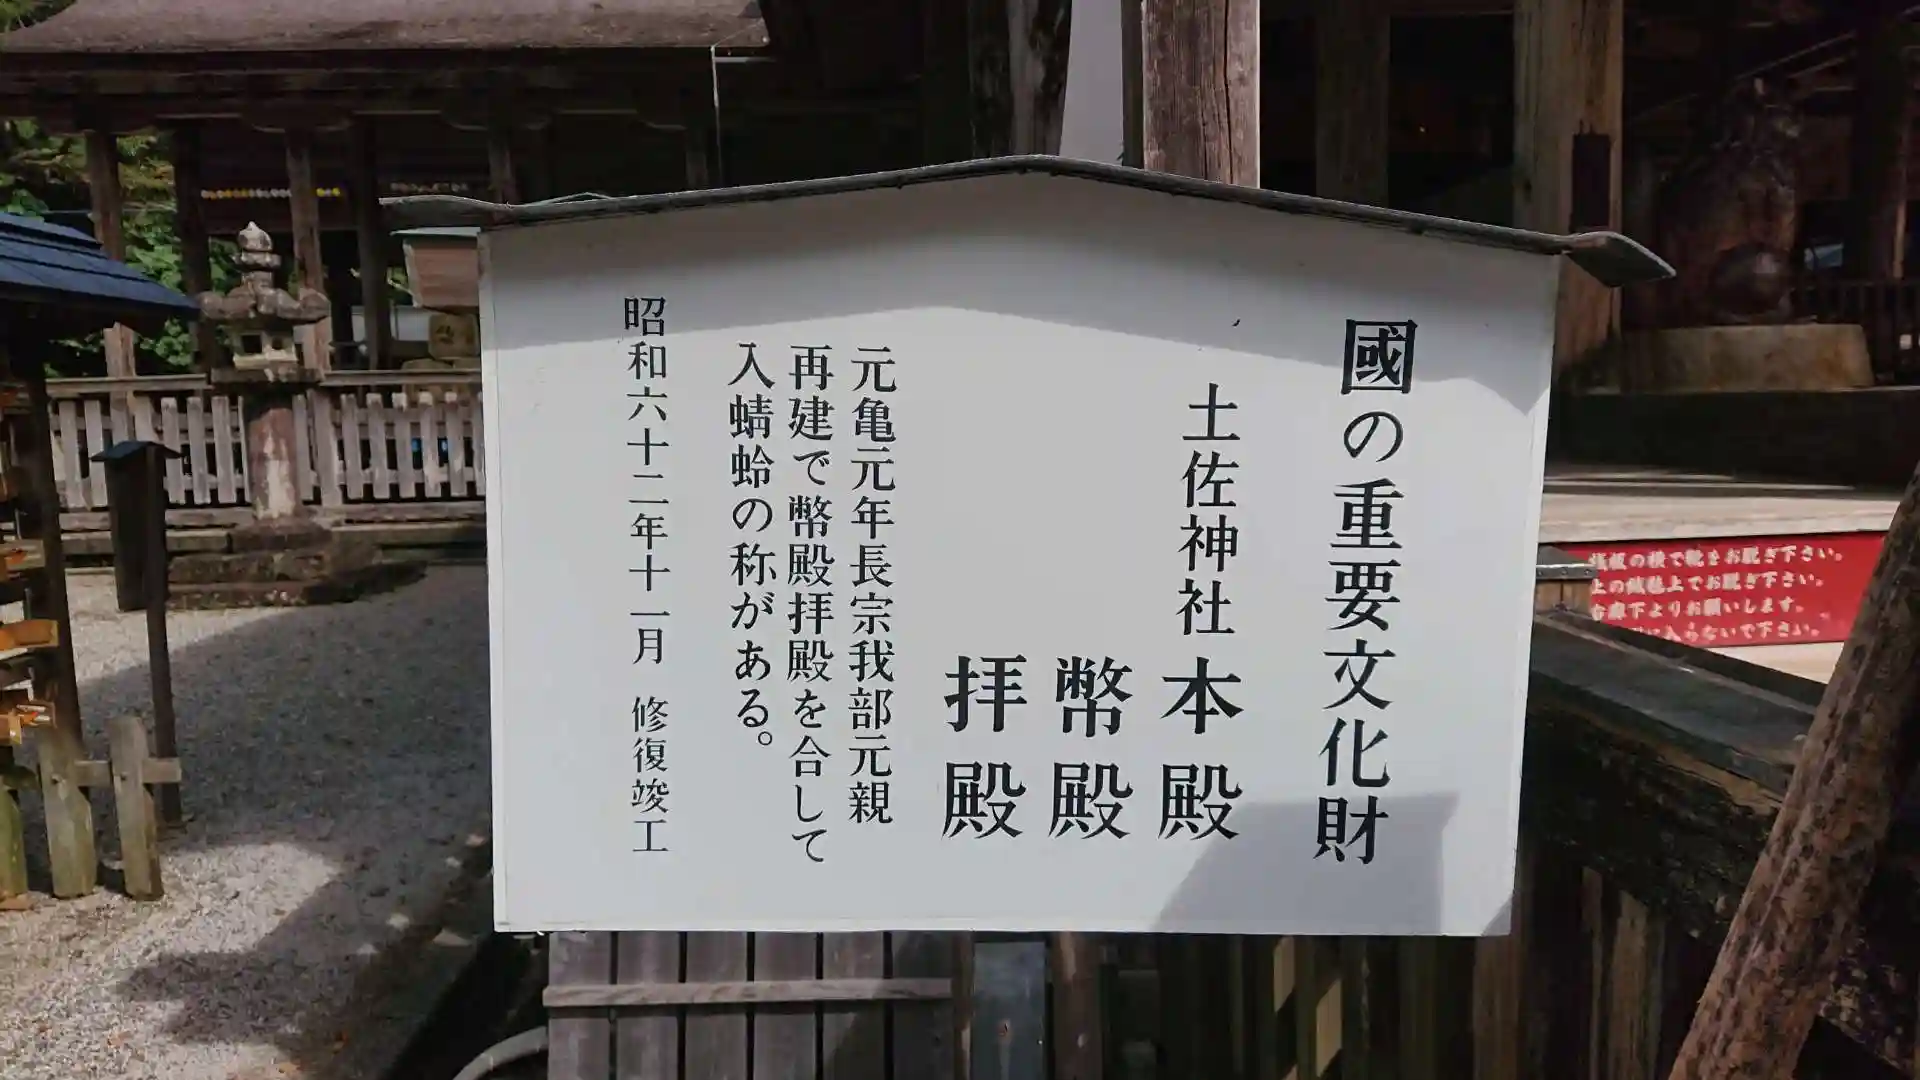 國の重要文化財
土佐神社本殿
幣殿
拝殿
元亀元年長宗我部元親
再建で幣殿拝殿を合して
入蜻蛉の称がある。
昭和六十二年十一月 修復竣工
板の横で靴をお脱ぎ下さい。
上でお脱ぎ下さい。
下よりお願いします。
入らないで下さい。